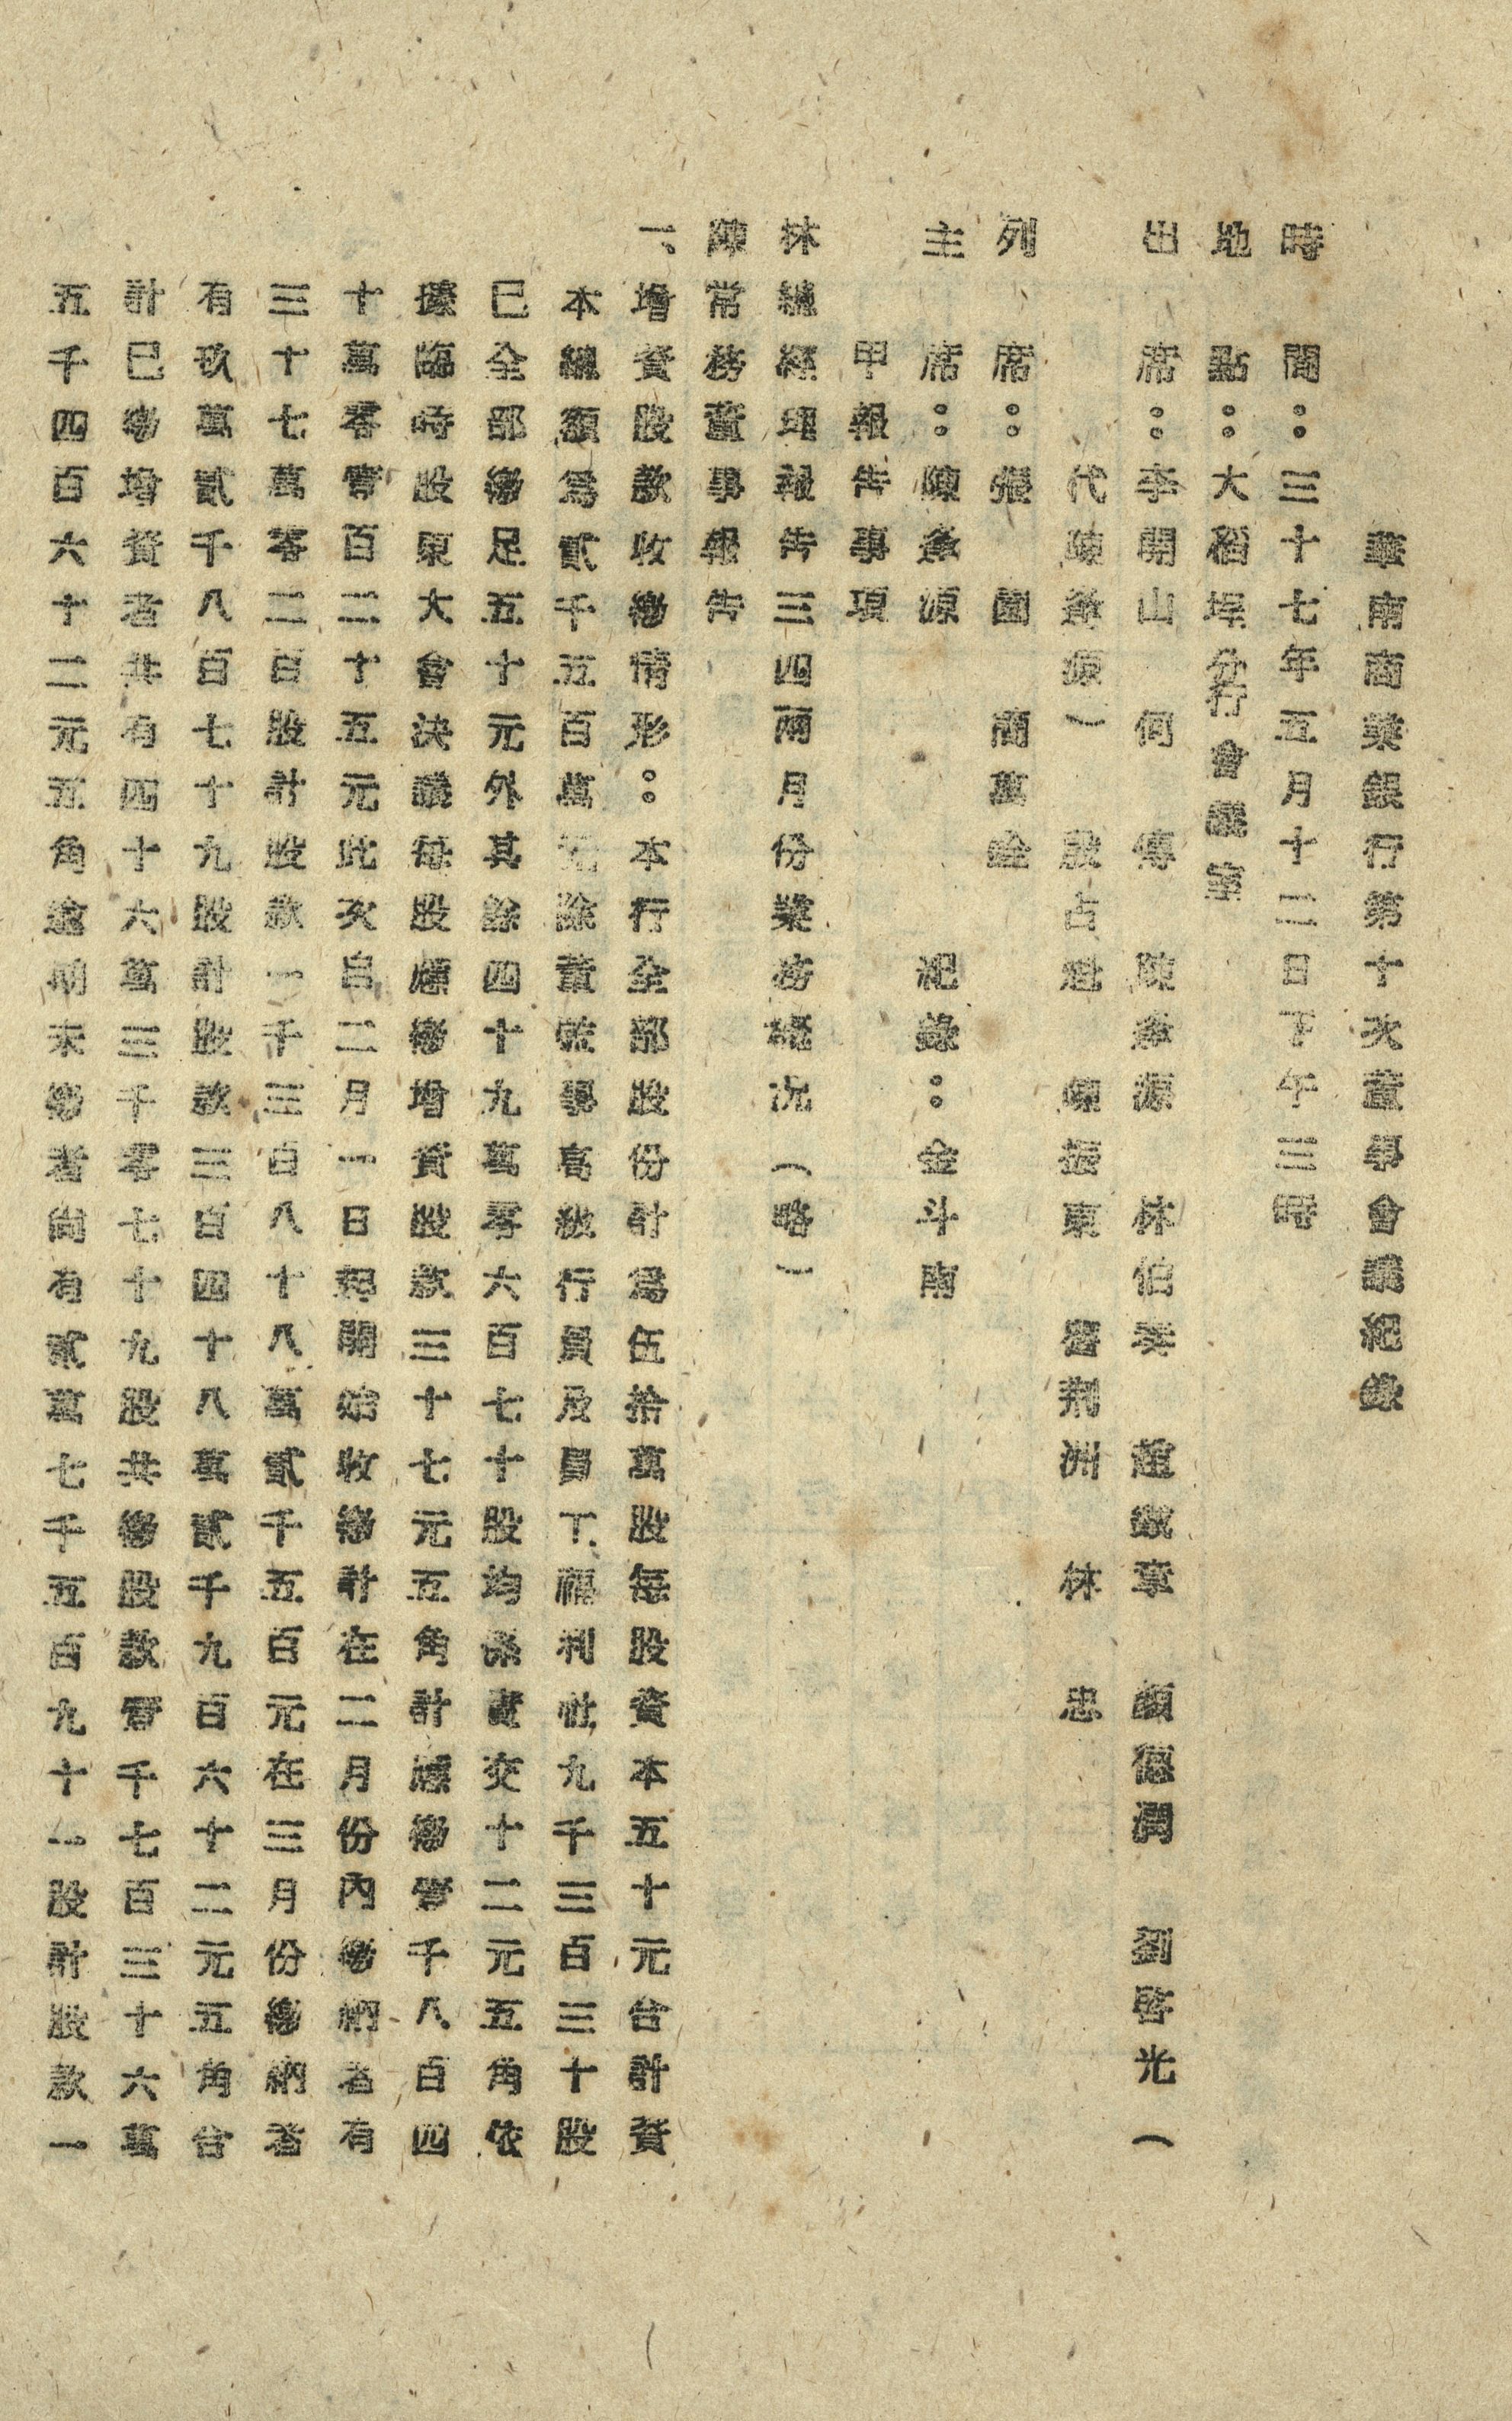 華南商業銀行第十次董事會議紀錄
時間：三十七年五月十二日下午三時
地點：大稻埕分行會議室
出席：李開山 何 傳 陳逢源 林伯奏 連 章 顏德潤 劉啓光（
代陳逢源） 股占魁 陳振東 曾荆洲 林 忠
列席：張園 蕭萬
主席：陳逢源 紀錄：金斗南
甲報告事項
林總經理報告三四兩月份業務概況（略）
陳常務董事報告
一、增資股款收繳情形：本行全部股份計爲伍拾萬股每股資本五十元合計資
本總額爲貳千五百萬元除董監事高級行員及員工福利社九千三百三十股
已全部繳足五十元外其餘四十九萬零六百七十股均係實交十二元五角依
據臨時股東大會決議每股應繳增資股款三十七元五角計應繳壹千八百四
十萬零壹百二十五元此次自二月一日起開始收繳計在二月份內繳納者有
三十七萬零二百股計股款一千三百八十八萬貳千五百元在三月份繳納者
有玖萬貳千八百七十九股計股款三百四十八萬貳千九百六十二元五角合
計已繳增資者共有四十六萬三千零七十九股共繳股款壹千七百三十六萬
五千四百六十二元五角逾期未繳者尙有貳萬七千五百九十一股計股款一